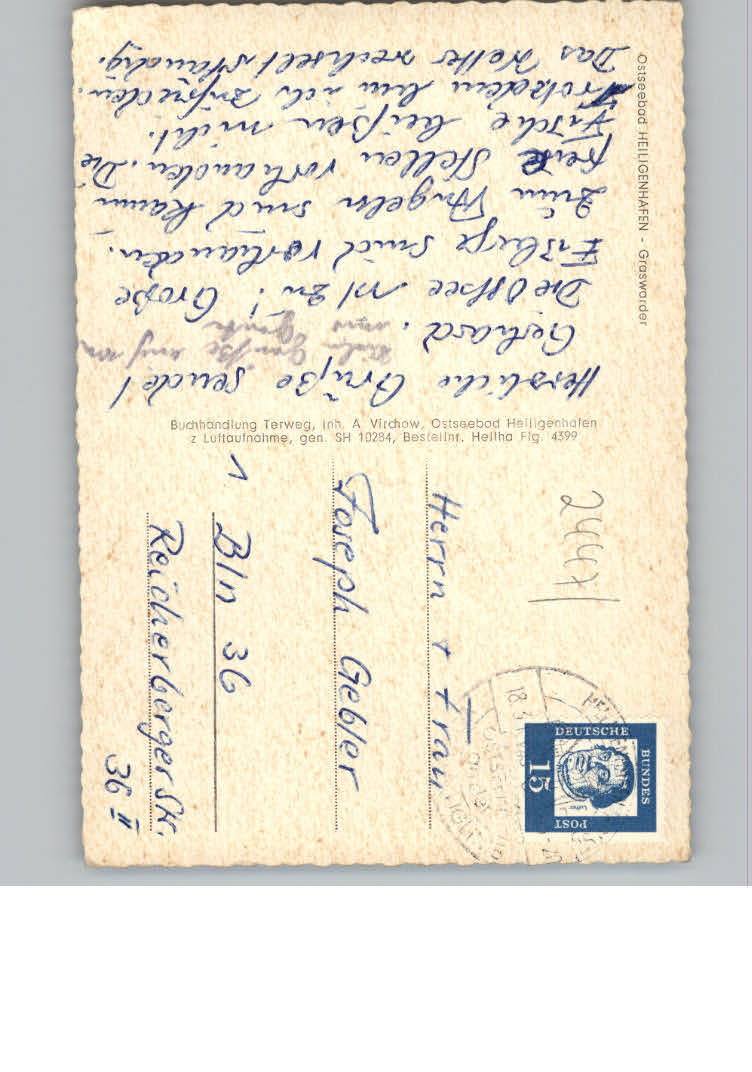 Ostseebad HEILIGENHAFEN - Graswarder
Das Wetter wechselt ständig.
Trotzdem bin ich zufrieden.
Fische beißen nicht.
freie Stellen vorhanden. Die
zum Angeln sind kaum
Eisberge sind vorhanden.
Die Ostsee ist zu! Große
Gerhard.
Viele Grüße auch von
Herzliche Grüße sendet
Buchhandlung Terweg, Inh. A. Virchow, Ostseebad Heiligenhafen
z Luftaufnahme, gen. SH 10284, Bestellnr. Hellha Flg 4399
2447
Herrn + Frau
Joseph Gebler
1 Bln 36
Reichenberger Str.
36 II
DEUTSCHE
BUNDES
POST
15
Luther
18.3.